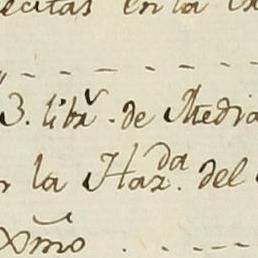 ecitas en la
3. libr̆. de Media
la Haz.da del
Xmo